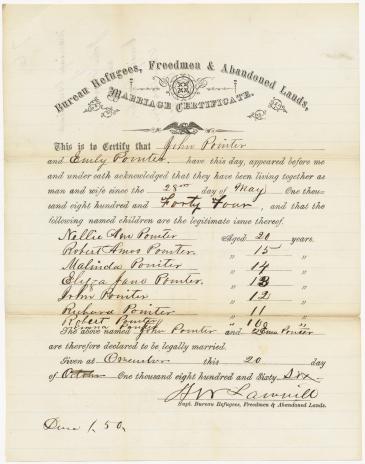 Bureau Refugees, Freedmen & Abandoned Lands,
MARRIAGE CERTIFICATE.
This is to Certify that John Pointer
and Emily Pointer. have this day, appeared before me
and under oath acknowledged that they have been living together as
man and wife since the 28th day of May One thou-
sand eight hundred and Forty Four, and that the
following named children are the legitimate issue thereof.
Nellie Ann Pointer Aged 20 years.
Robert Amos Pointer " 15 "
Malinda Pointer " 14 "
Eliza Jane Pointer. " 13 "
John Pointer " 12 "
Richard Pointer " 11 "
Robert Pointer " 10 "
Pointer " 8 "
The above named John Pointer and Pointer
are therefore declared to be legally married.
Given at this 20 day
of One thousand eight hundred and Sixty Six
H W
Capt. Bureau Refugees, Freedmen & Abandoned Lands.
1.50